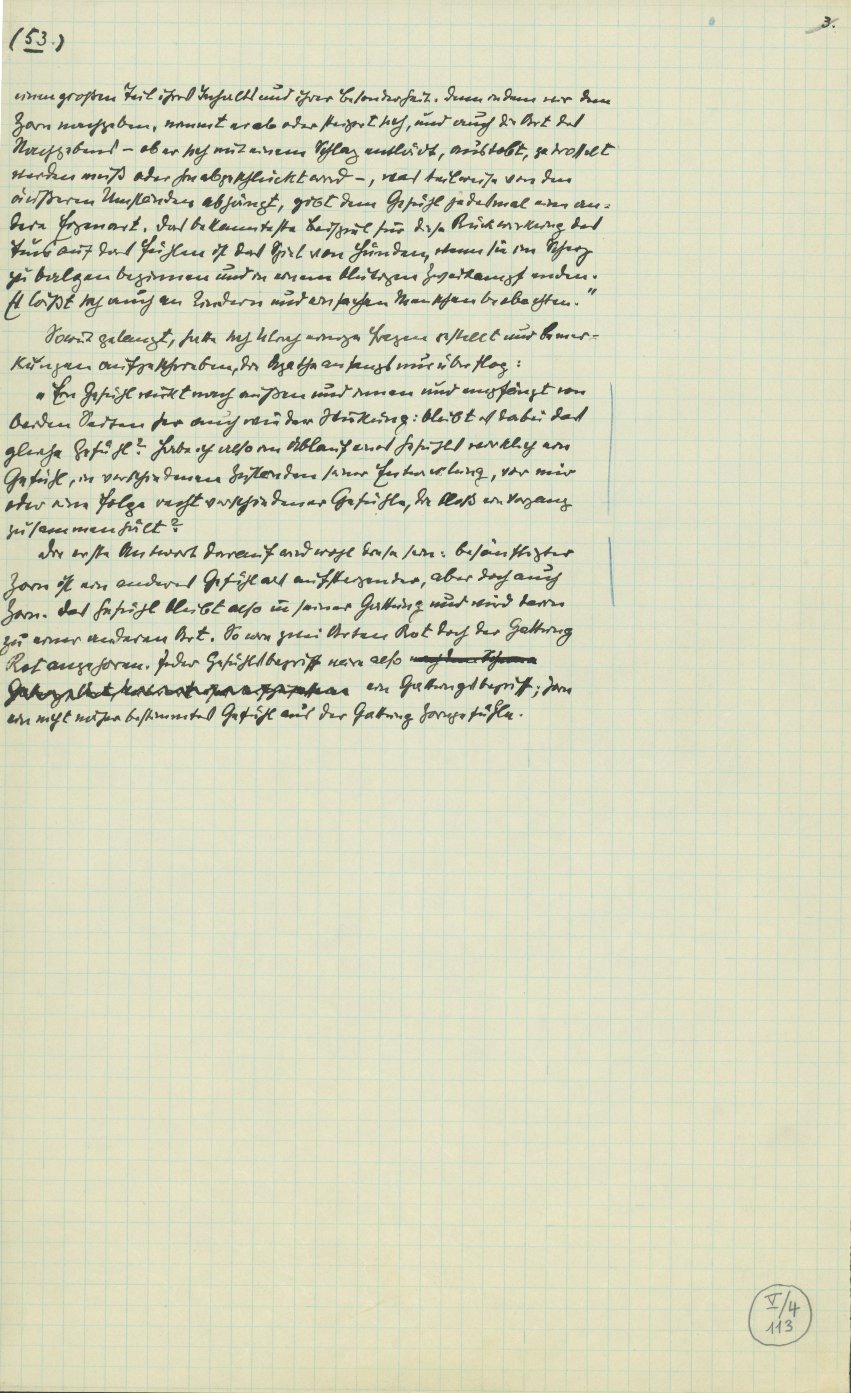 (53.)
3.
einen großen Teil ihres Inhalts und ihrer Besonderheit. Denn indem wir dem
Zorn nachgeben, nimmt er ab oder steigert sich, und auch die Art des
Nachgebens – ob er sich mit einem Schlag entlädt, austobt, gedrosselt
werden muß oder hinabgeschluckt wird –, was teilweise von den
äußeren Umständen abhängt, gibt dem Gefühl jedesmal eine an-
dere Eigenart. Das bekannteste Beispiel für diese Rückwirkung des
Tuns auf das Fühlen ist das Spiel von Hunden, wenn sie im Scherz
zu balgen beginnen und in einem blutigen Zweikampf enden.
Es läßt sich auch an Kindern und einfachen Menschen beobachten."
Soweit gelangt, hatte sich Ulrich einige Fragen gestellt und Bemer-
kungen aufgeschrieben, die Agathe anfangs nur überflog:
„Ein Gefühl wirkt nach außen und innen und empfängt von
beiden Seiten her auch wieder Wirkung: bleibt es dabei das
gleiche Gefühl? Habe ich also im Ablauf eines Gefühls wirklich ein
Gefühl, in verschiedenen Zuständen seiner Entwicklung, vor mir
oder eine Folge recht verschiedener Gefühle, die bloß ein Vorgang
zusammenhält?
Die erste Antwort darauf wird wohl diese sein: besänftigter
Zorn ist ein anderes Gefühl als aufsteigender, aber doch auch
Zorn. Das Gefühl bleibt also in seiner Gattung und wird darin
zu einer anderen Art. So wie zwei Arten Rot doch der Gattung
Rot angehören. Jeder Gefühlsbegriff wäre also
ein Gattungsbegriff; Zorn
ein nicht näher bestimmtes Gefühl aus der Gattung Zorngefühle.
V/4
113